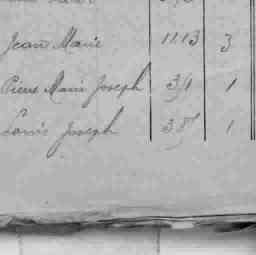 Jean Marie 1113 3
Pierre Marie Joseph 34 1
Louis Joseph 38 1